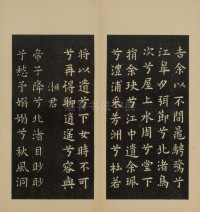 告余以不閒鼂騁騖兮
江皋夕弭節兮北渚鳥
次兮屋上水周兮堂下
捐余玦兮江中遺余佩
兮澧浦采芳洲兮杜若
將以遺兮下女時不可
兮再得聊逍遙兮容與
湘君
帝子降兮北渚目眇眇
兮愁予嫋嫋兮秋風洞